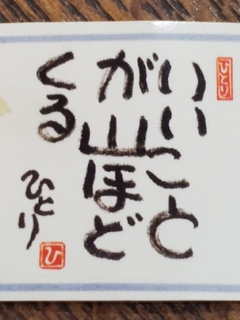 いいこと
が山ほど
くる
ひとり
ひとり
ひ